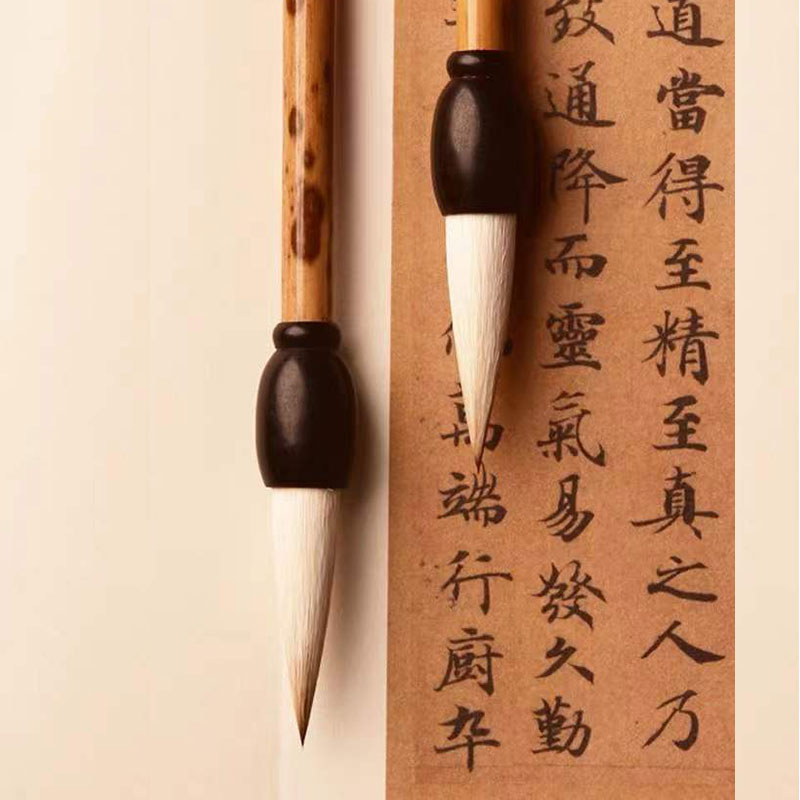 道當得至精至真之人乃
致通降而靈氣易發久勤
萬端行廚卒